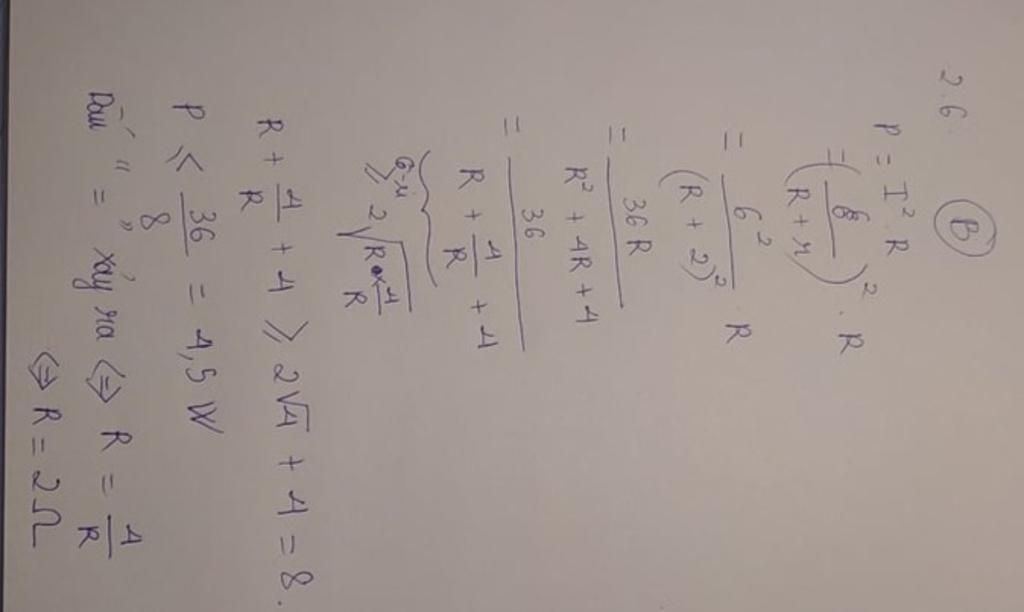 2.6 (B)
P = I² R
= (ℰ / (R + r))² . R
= 6² / (R + 2)² . R
= 36R / (R² + 4R + 4)
= 36 / (R + 4/R + 4)
Cô-si ≥ 2√(R × 4/R)
R + 4/R + 4 ≥ 2√4 + 4 = 8.
P ≤ 36/8 = 4,5 W
Dấu " = " xảy ra ⇔ R = 4/R
⇔ R = 2Ω